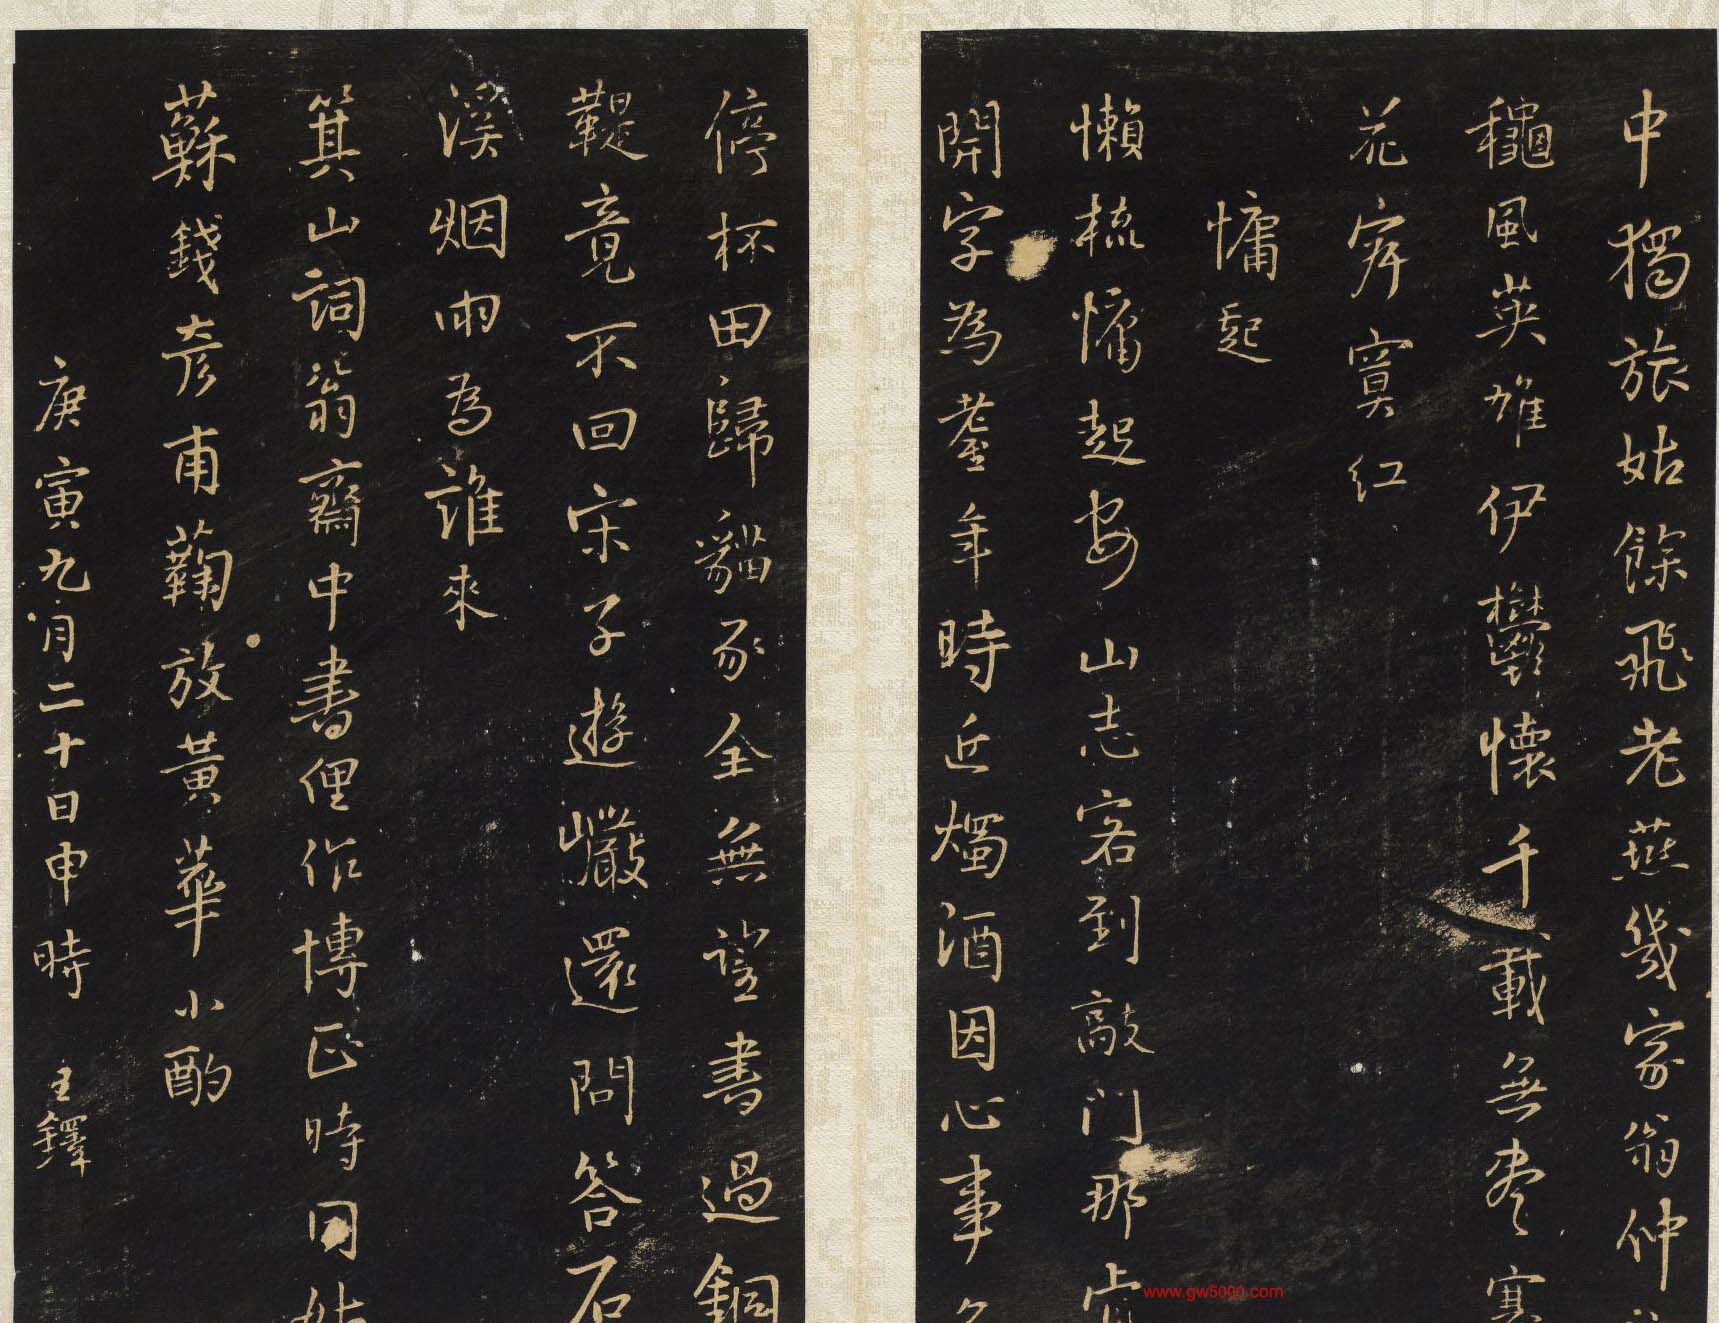 中獨旅姑餘飛老燕幾家翁仲
龝風英雄伊鬱懷千載無盡寒
花穽寞紅
慵起
懶梳慵起安山志客到敲門那肯
開字為耋年時近燭酒因心事
停杯田歸貓豕全無證書過銅
鞮竟不回宋子遊巘還問答石
溪烟雨為誰來
箕山詞翁齋中書俚作博正時同姑
蘇錢彥甫鞠放黃華小酌
庚寅九月二十日申時 王鐸
www.gw5000.com